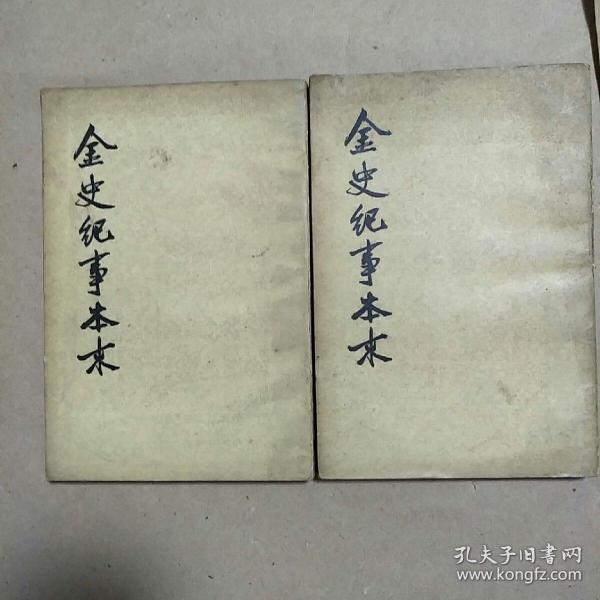 金史纪事本末
金史纪事本末
孔夫子旧書网
www.kongfz.com